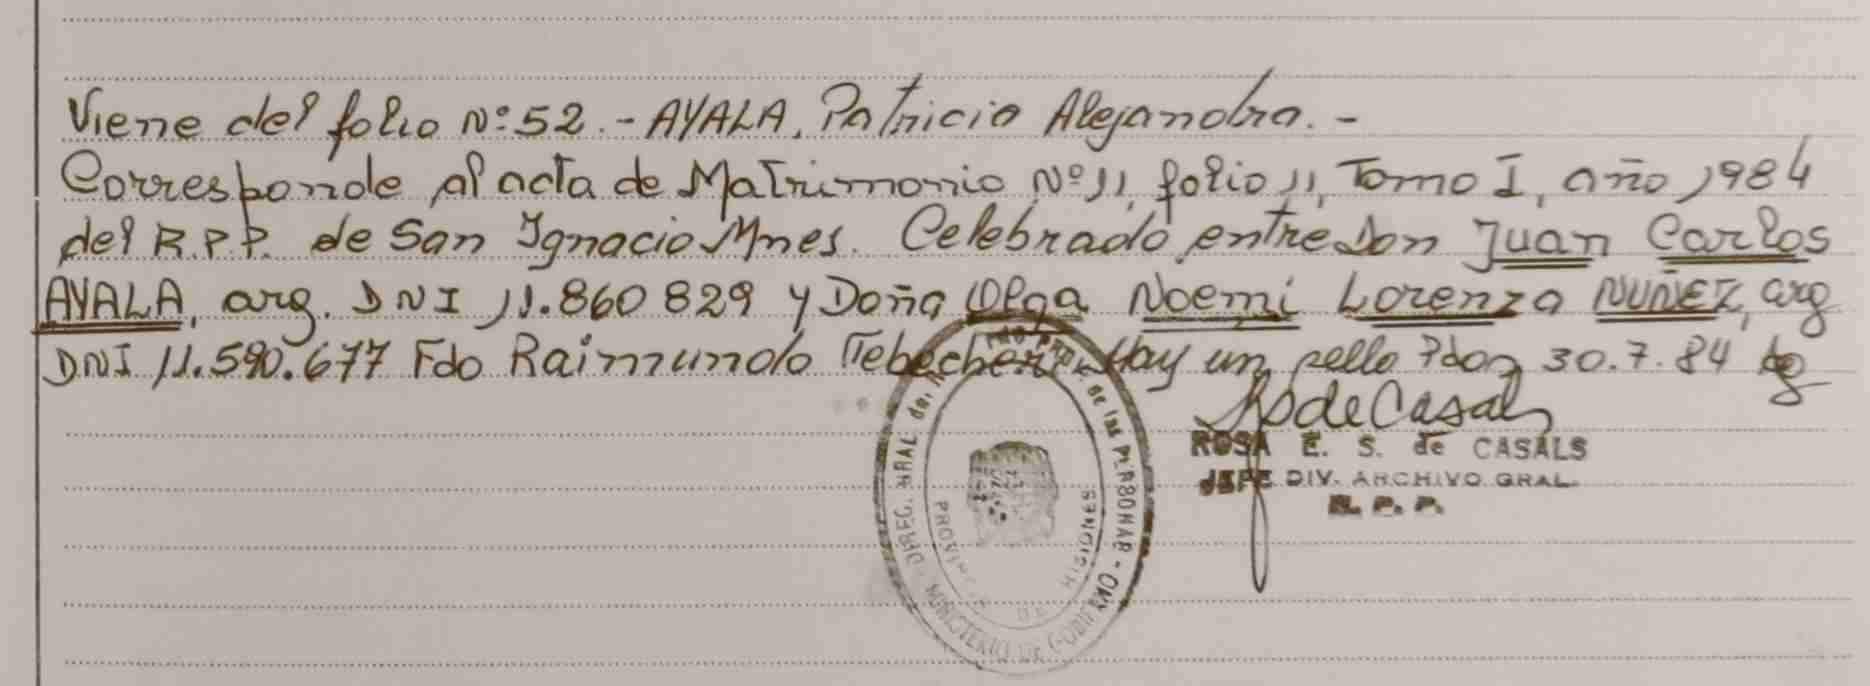 Viene del folio Nº 52.- AYALA, Patricia Alejandra.-
Corresponde al acta de Matrimonio Nº 11, folio 11, Tomo I, año 1984
del R.P.P. de San Ignacio Mnes. Celebrado entre Don Juan Carlos
AYALA, arg. DNI 11.860829 y Doña Olga Noemi Lorenza NUÑEZ, arg
DNI 11.590.677 Fdo Raimundo Tebecher. Hay un sello Pdas 30.7.84
de Casals
ROSA E. S. de CASALS
JEFE DIV. ARCHIVO GRAL.
R. P. P.
DIREC. GRAL. de las PERSONAS - MINISTERIO DE GOBIERNO
PROVINCIA DE MISIONES